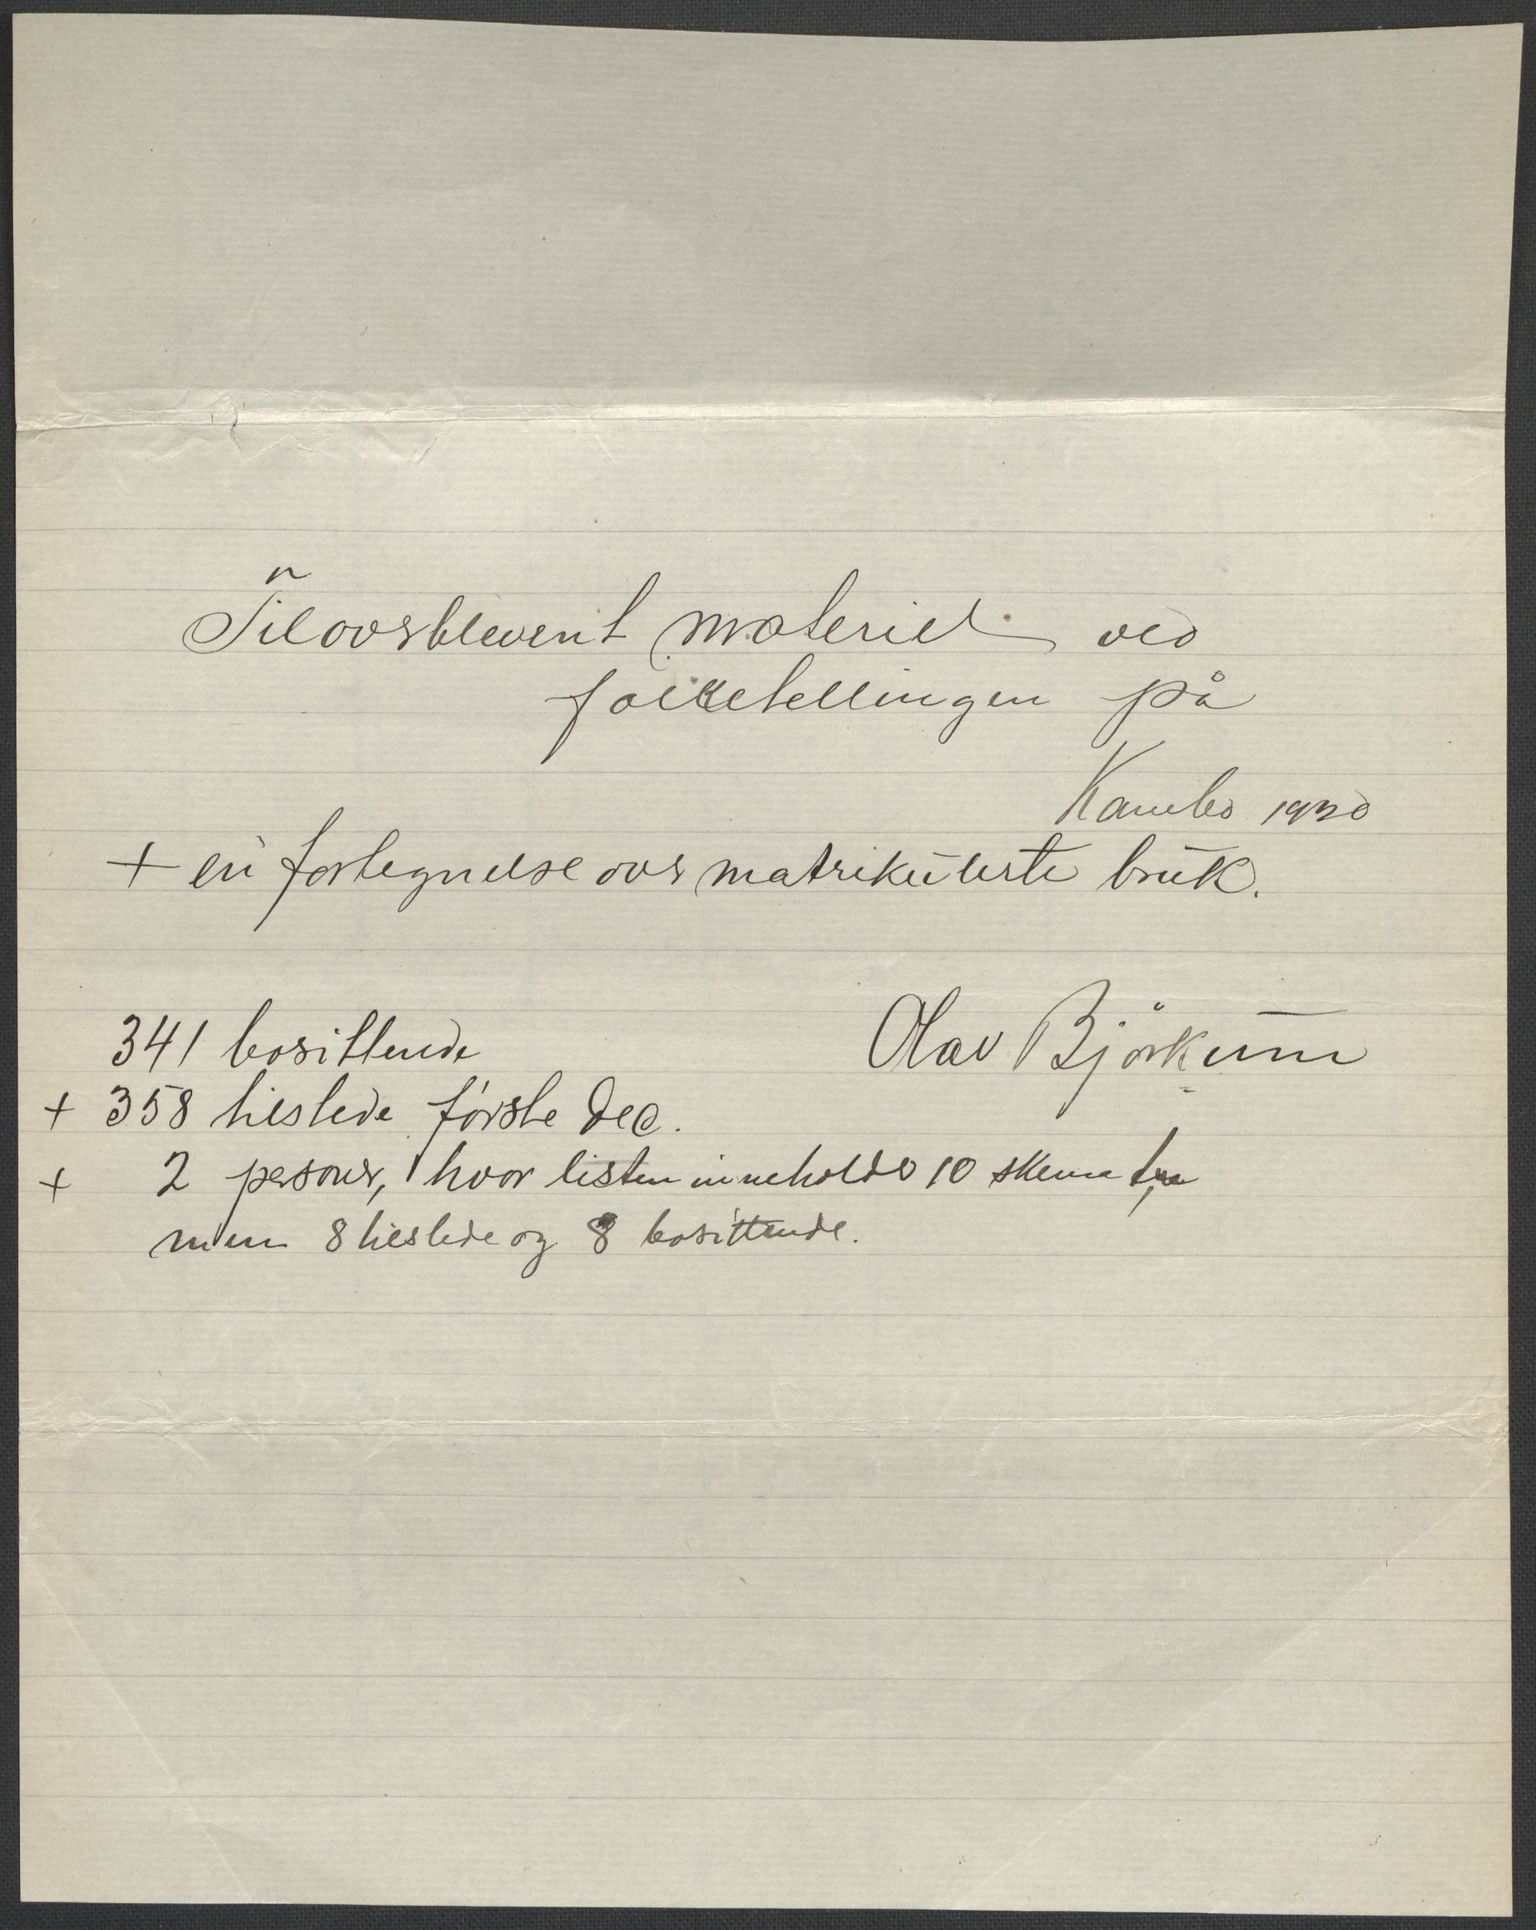 Tiloversblevent materiel ved
folketellingen på
Kambo 1920
+ en fortegnelse over matrikulerte bruk.
Olav Björkum
341 bosittende
+ 358 tilstede første Dec.
+ 2 persons, hvor listen inneholder 10 skema
men 8 tilstede og 8 bosittende.